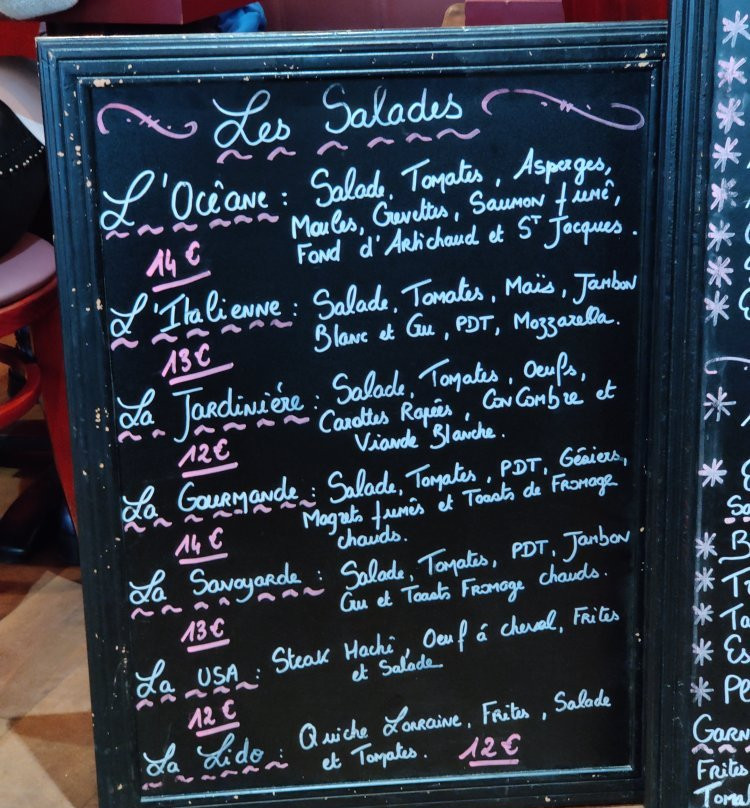 Les Salades
L'Océane : Salade, Tomates, Asperges,
Moules, Crevettes, Saumon fumé,
Fond d'Artichaud et ST Jacques.
14 €
L'Italienne : Salade, Tomates, Maïs, Jambon
Blanc et Cru, PDT, Mozzarella.
13 €
La Jardinière : Salade, Tomates, Oeufs,
Carottes Rapées, ConCombre et
Viande Blanche.
12 €
La Gourmande : Salade, Tomates, PDT, Gésiers,
Magrets fumés et Toasts de Fromage
chauds.
14 €
La Savoyarde : Salade, Tomates, PDT, Jambon
Cru et Toasts Fromage chauds.
13 €
La USA : Steak Haché, Oeuf á cheval, Frites
et Salade
12 €
La Lido : Quiche Lorraine, Frites, Salade
et Tomates. 12 €